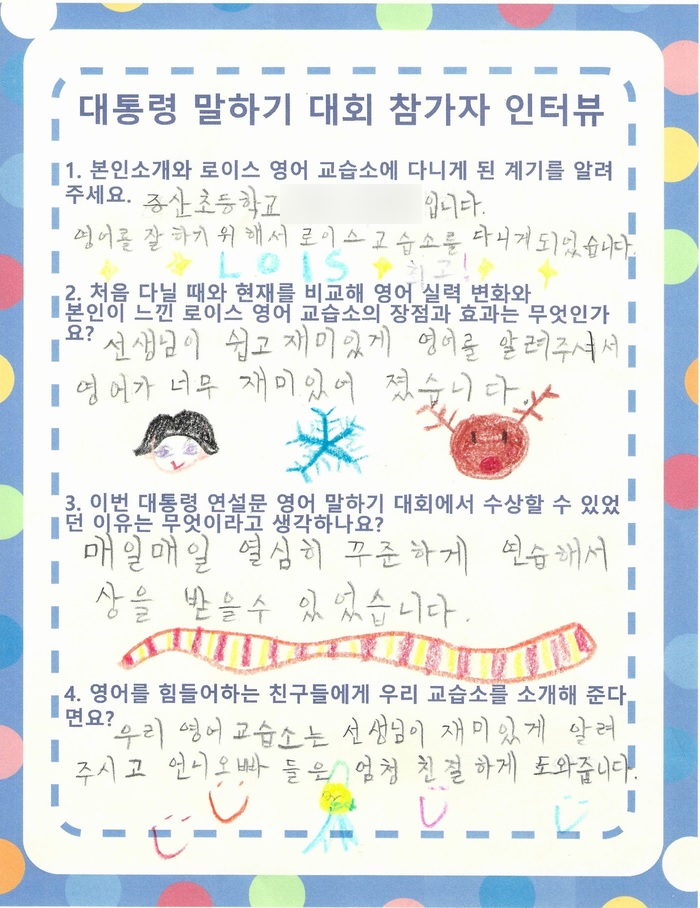 대통령 말하기 대회 참가자 인터뷰
1. 본인소개와 로이스 영어 교습소에 다니게 된 계기를 알려
주세요. 증산초등학교 입니다.
영어를 잘 하기 위해서 로이스 교습소를 다니게 되었습니다.
LOIS 최고!
2. 처음 다닐 때와 현재를 비교해 영어 실력 변화와
본인이 느낀 로이스 영어 교습소의 장점과 효과는 무엇인가
요? 선생님이 쉽고 재미있게 영어를 알려주셔서
영어가 너무 재미있어 졌습니다.
3. 이번 대통령 연설문 영어 말하기 대회에서 수상할 수 있었
던 이유는 무엇이라고 생각하나요?
매일매일 열심히 꾸준하게 연습해서
상을 받을수 있었습니다.
4. 영어를 힘들어하는 친구들에게 우리 교습소를 소개해 준다
면요? 우리 영어교습소는 선생님이 재미있게 알려
주시고 언니오빠 들은 엄청 친절하게 도와줍니다.